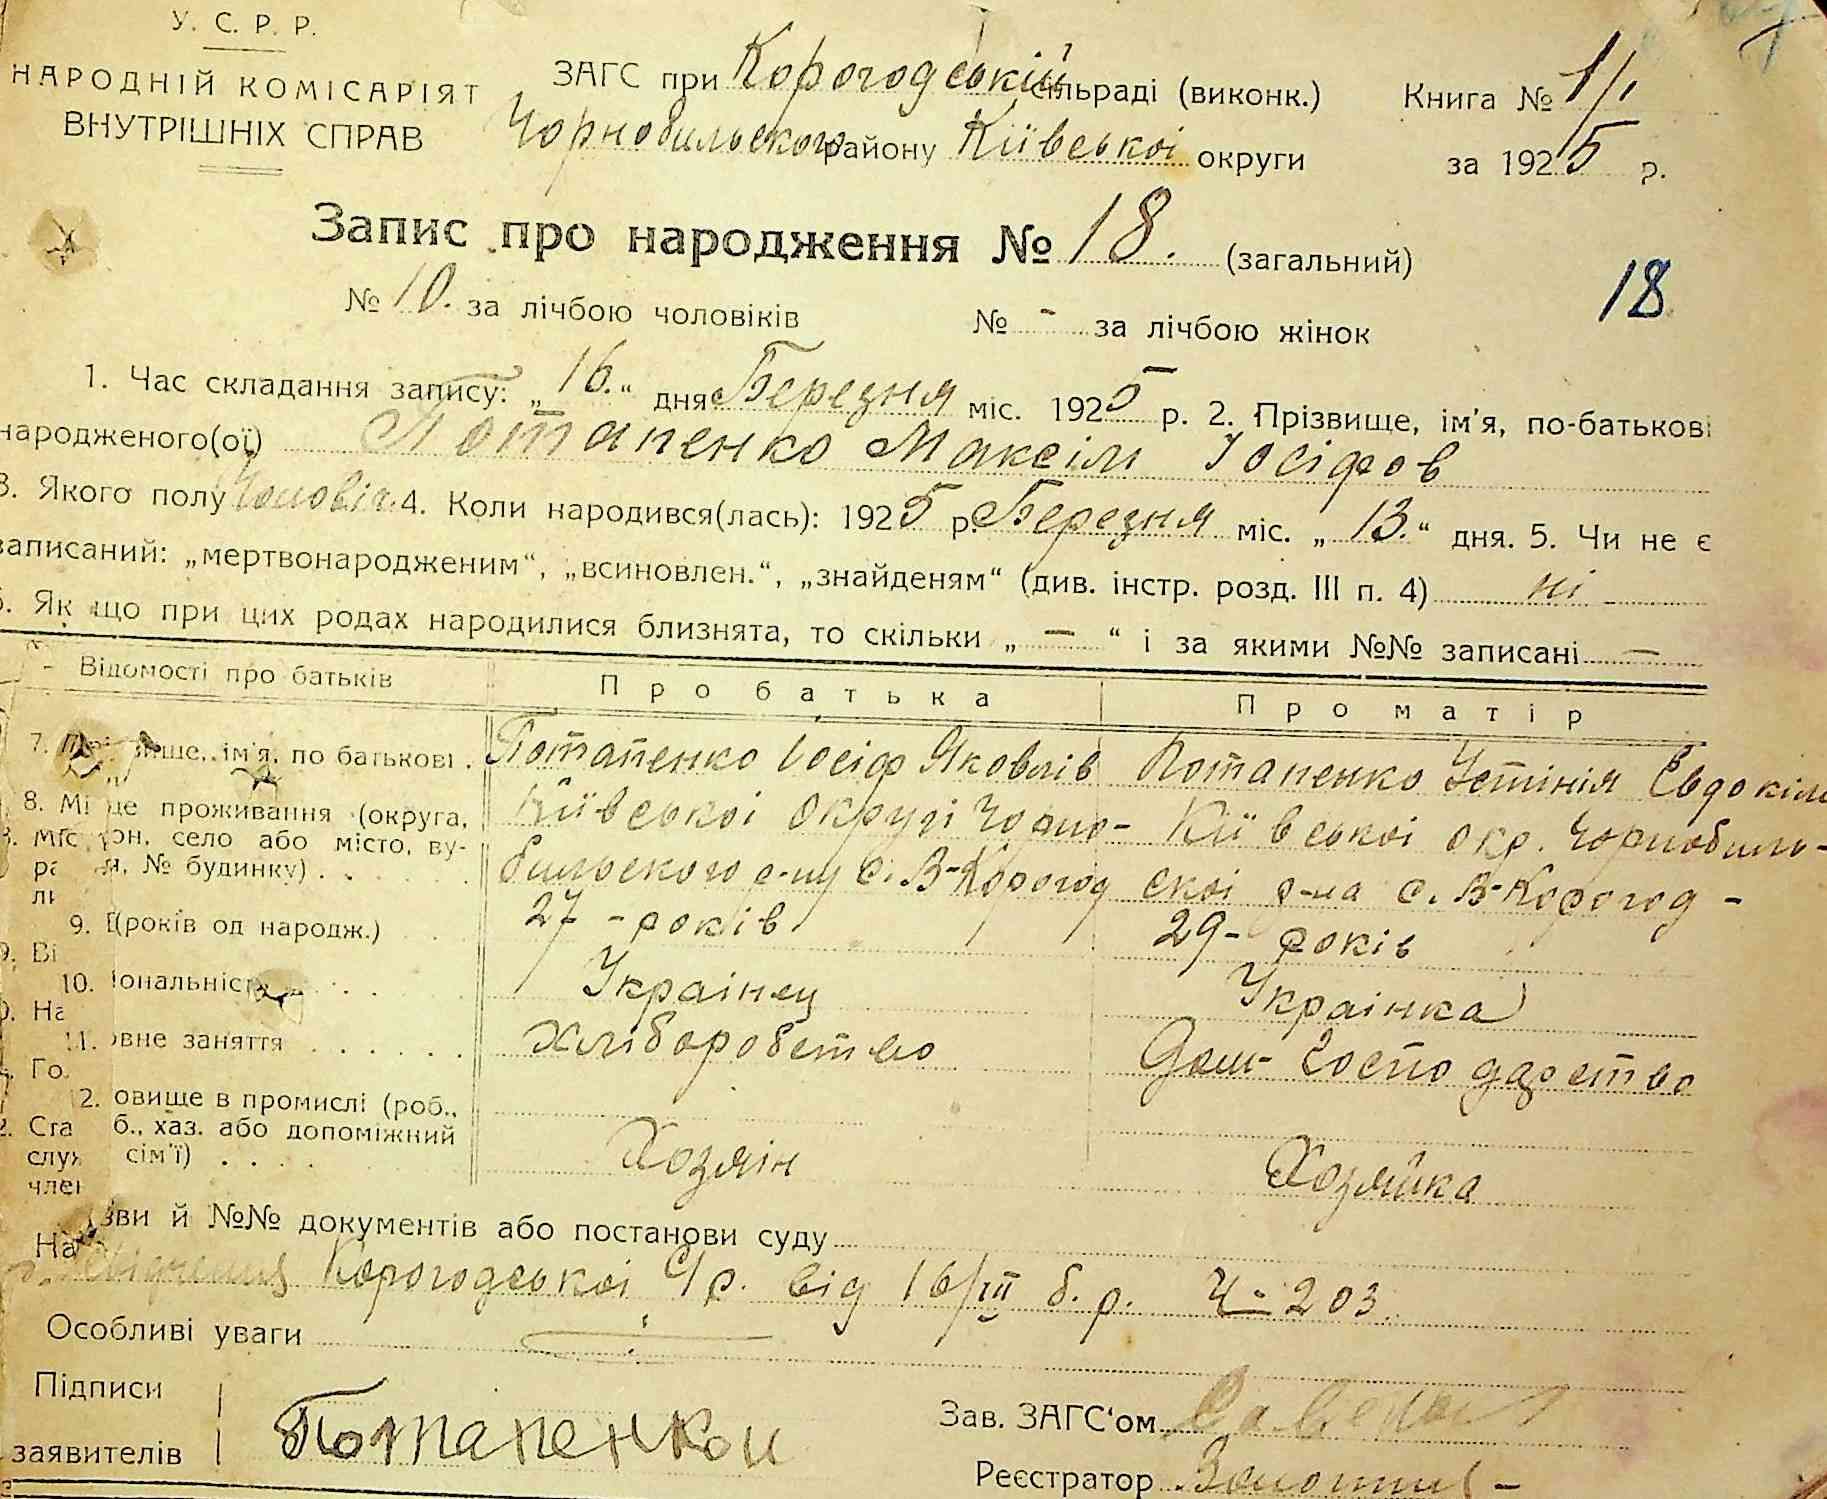 У. С. Р. Р.
НАРОДНІЙ КОМІСАРІЯТ
ВНУТРІШНІХ СПРАВ
ЗАГС при Корогодській сільраді (виконк.)
Чорнобильского району Кіївськоі округи
Книга № 1/1
за 1925 р.
Запис про народження № 18. (загальний)
18
№ 10. за лічбою чоловіків № - за лічбою жінок
1. Час складання запису: „16.“ дня Березня міс. 1925 р. 2. Прізвище, ім'я, по-батькові
народженого(ої) Потапенко Максім Іосіфов
3. Якого полу Чоловіч. 4. Коли народився(лась): 1925 р. Березня міс. „13.“ дня. 5. Чи не є
записаний: „мертвонародженим“, „всиновлен.“, „знайденям“ (див. інстр. розд. III п. 4) ні
6. Як що при цих родах народилися близнята, то скільки „ — “ і за якими №№ записані —
Відомості про батьків Про батька Про матір
7. ім'я, по батькові . Потапенко Іосіф Яковлів Потапенко Устінія Євдокім
8. Мі це проживання (округа, Кіївськоі округі Чорно- Кіівськоі окр. Чорнобиль-
он, село або місто, ву- бильского р-ну с. В-Корогод скоі р-на с. В-Корогод -
№ будинку) . .
9. (років од народж.) . . 27 - років 29 - років
10. іональніс . . . Украінец Украінка
11. овне заняття . . . . . . Хліборобство Дом- Господарство
12. овище в промислі (роб.,
б., хаз. або допоміжний
сім'ї) . . . . Хозяін Хозяйка
зви й №№ документів або постанови суду
Корогодськоі С/р. від 16/III б. р. Ч - 203.
Особливі уваги
Підписи
заявителів Потапенкои
Зав. ЗАГС'ом
Реєстратор